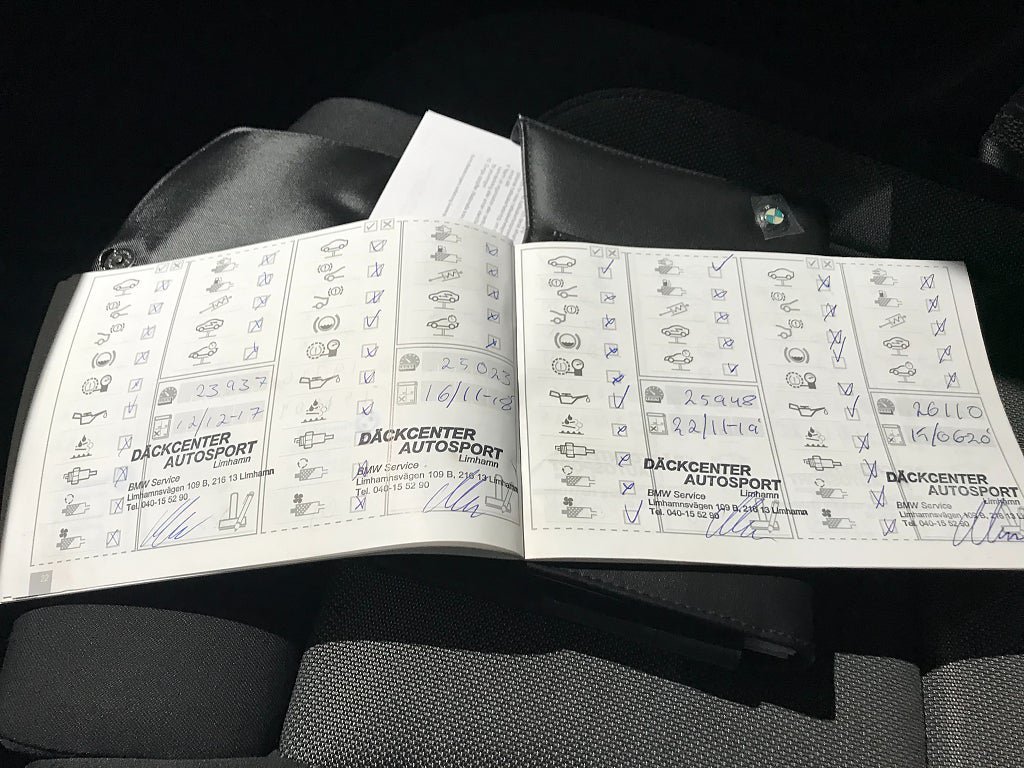 23937
12/12-17
DÄCKCENTER
AUTOSPORT
Limhamn
BMW Service
Limhamnsvägen 109 B, 216 13 Limhamn
Tel. 040-15 52 90
22
25023
16/11-18
DÄCKCENTER
AUTOSPORT
Limhamn
BMW Service
Limhamnsvägen 109 B, 216 13 Limhamn
Tel. 040-15 52 90
25948
22/11-19
DÄCKCENTER
AUTOSPORT
Limhamn
BMW Service
Limhamnsvägen 109 B, 216 13 Limhamn
Tel. 040-15 52 90
26110
15/0620
DÄCKCENTER
AUTOSPORT
Limhamn
BMW Service
Limhamnsvägen 109 B, 216 13 Limhamn
Tel. 040-15 52 90